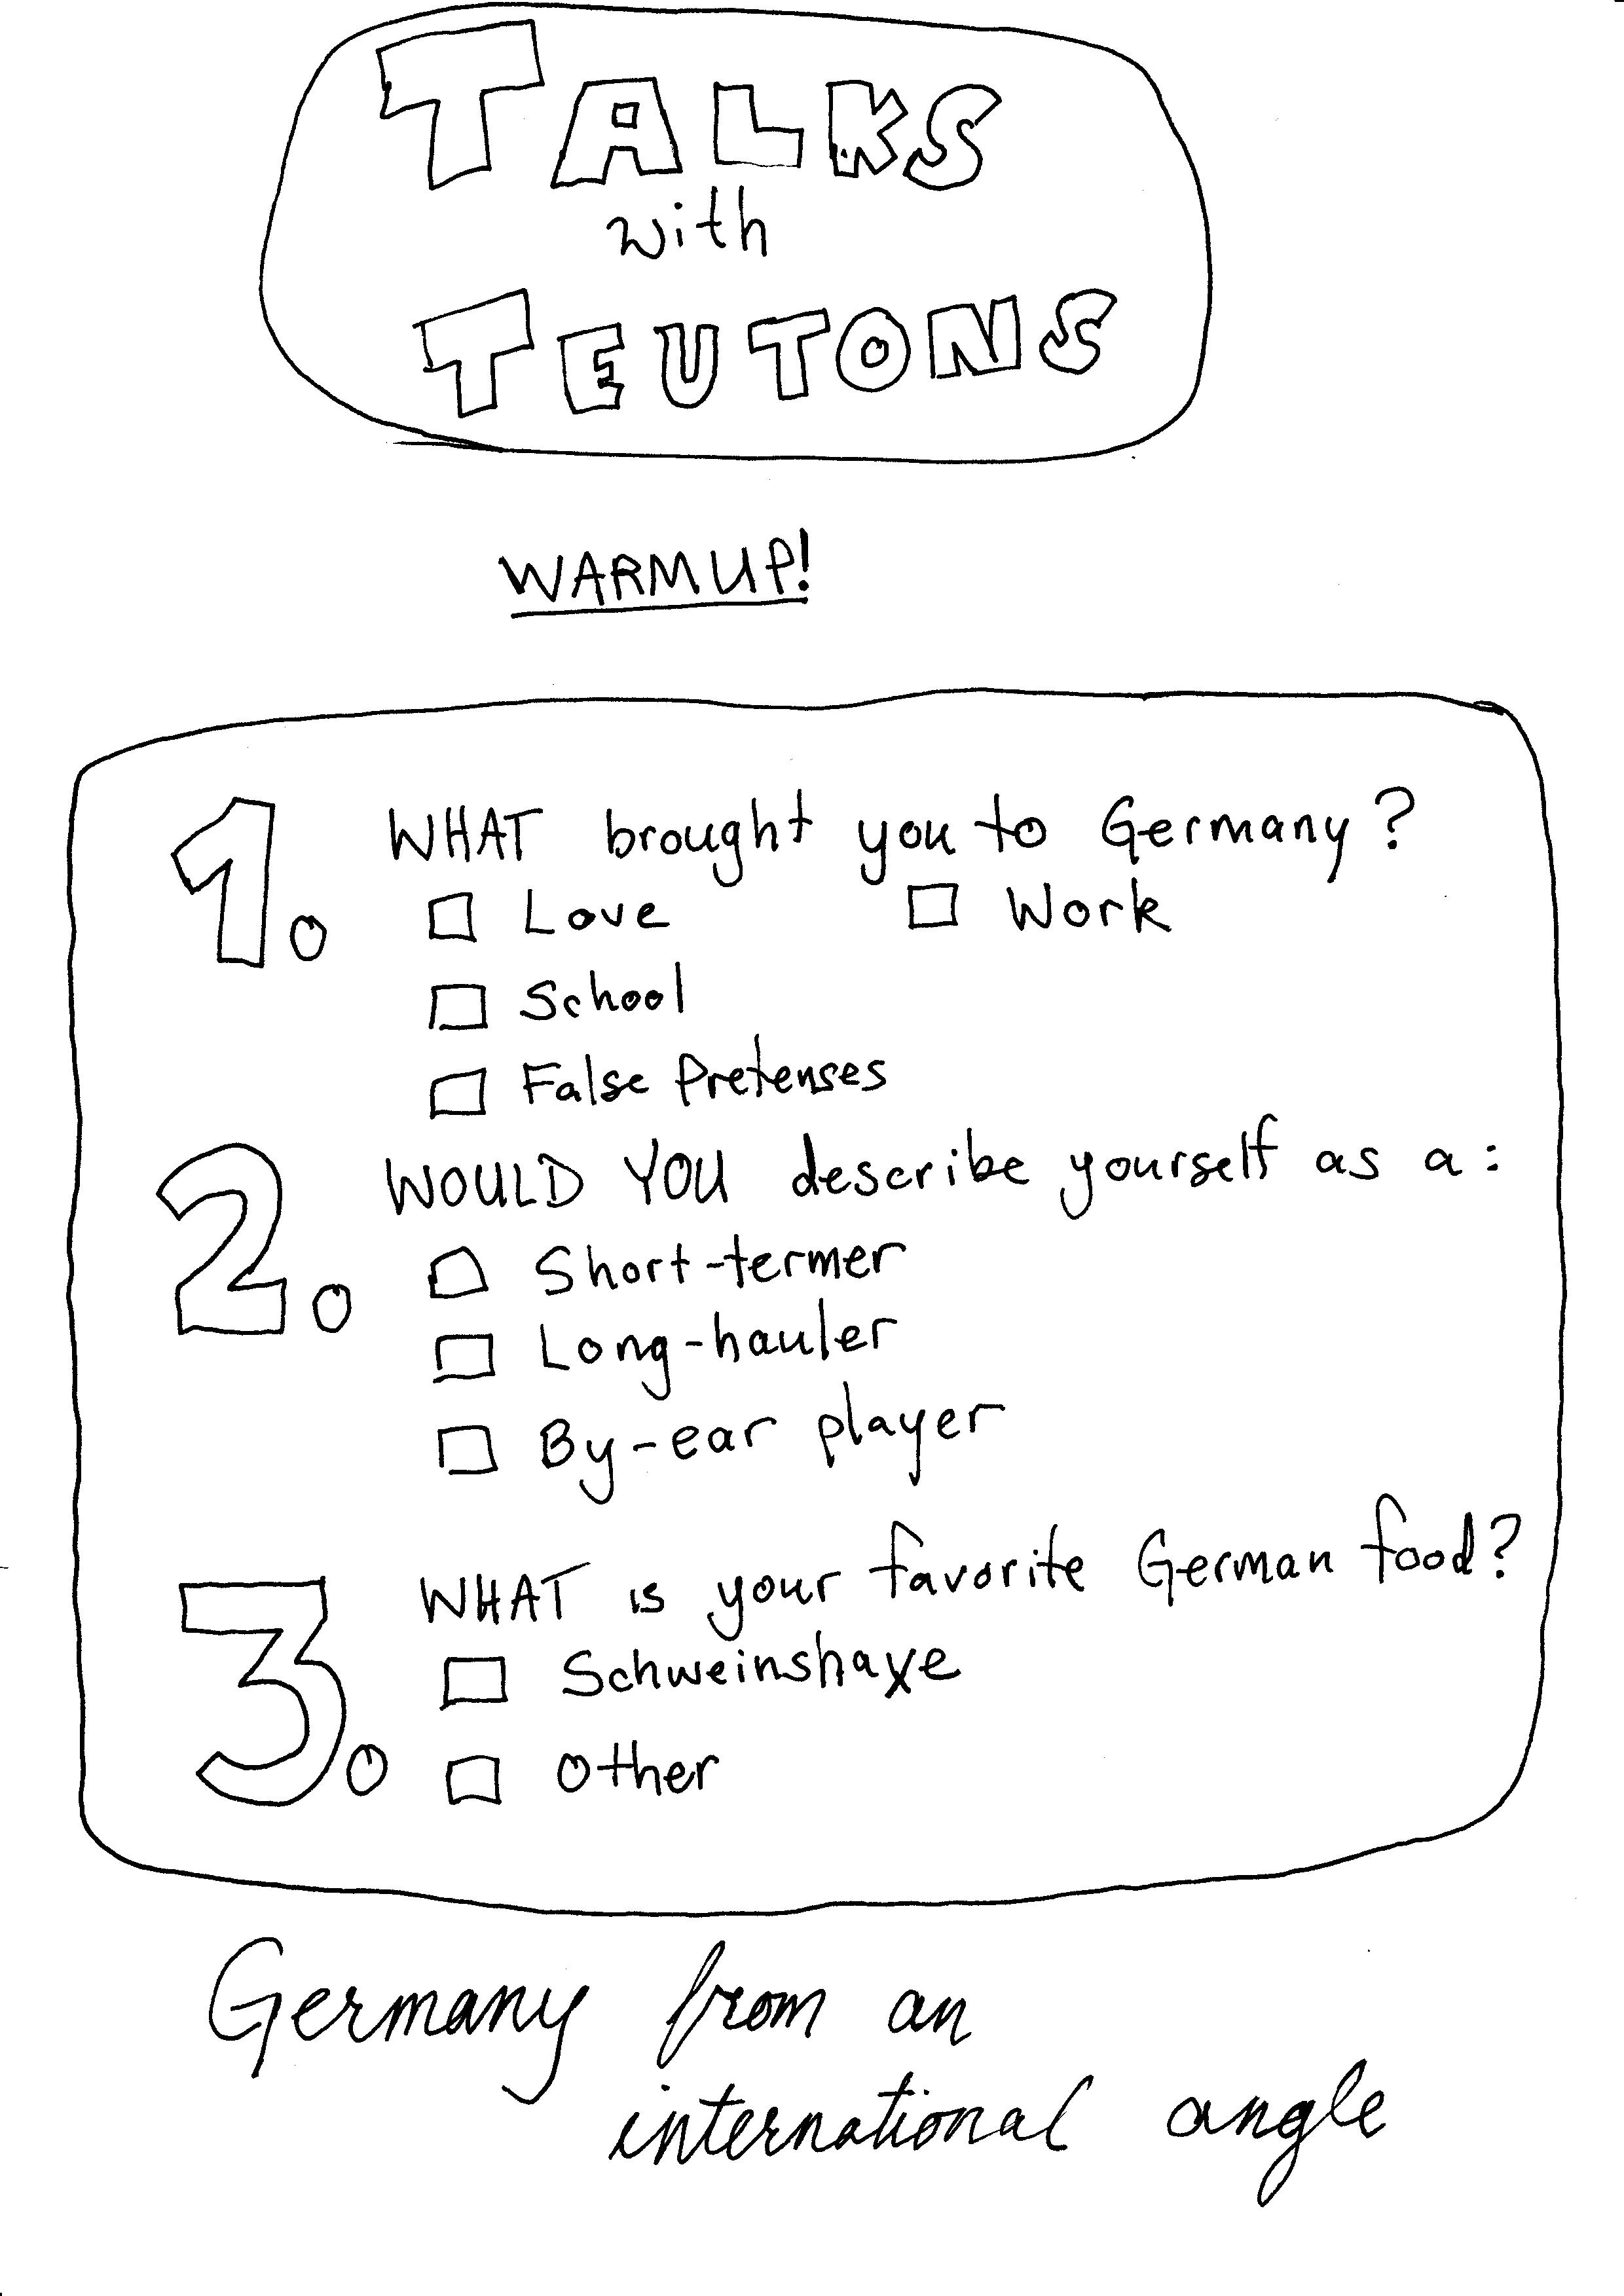 TALKS
with
TEUTONS
WARM UP!
1. WHAT brought you to Germany?
Love Work
School
False Pretenses
2. WOULD YOU describe yourself as a:
Short-termer
Long-hauler
By-ear player
3. WHAT is your favorite German food?
Schweinshaxe
Other
Germany from an
international angle